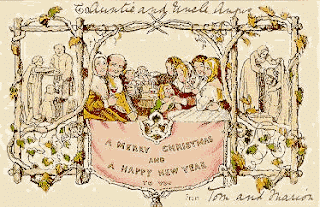 To Auntie and Uncle Angus
A MERRY CHRISTMAS
AND
A HAPPY NEW YEAR
TO YOU
Tom and Marion